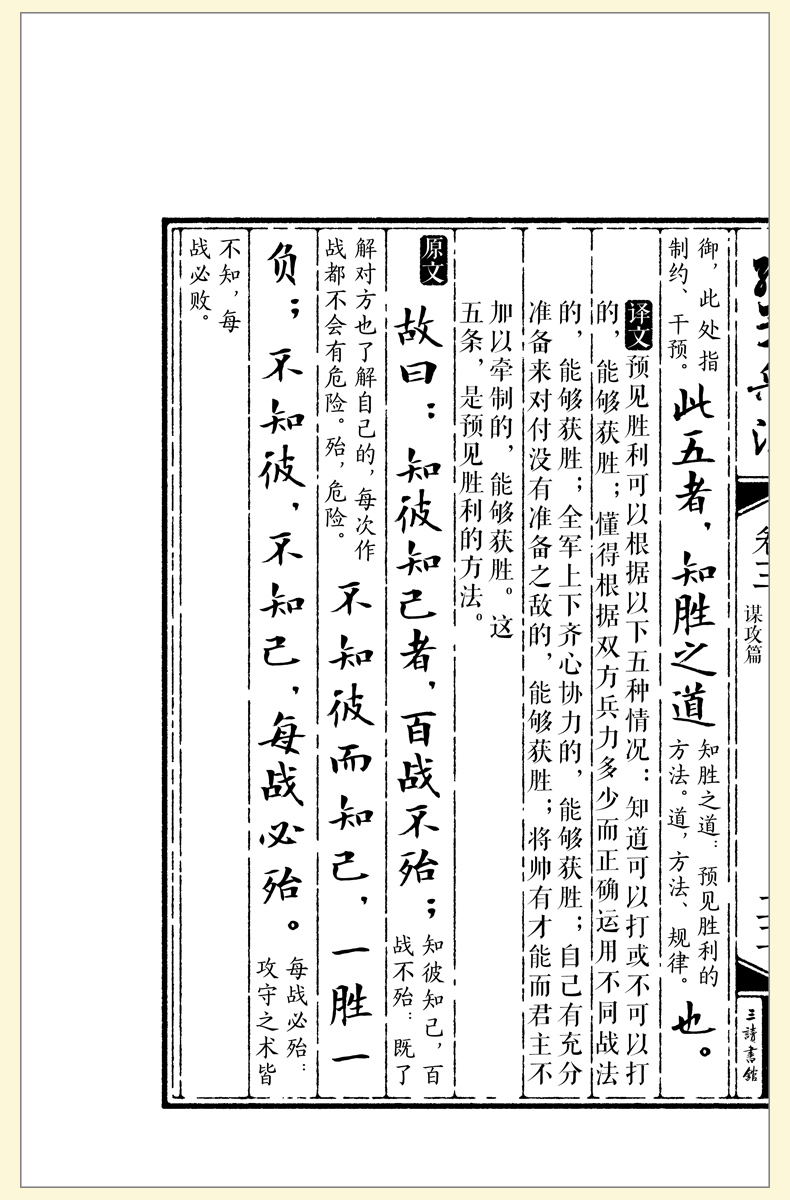 卷三
谋攻篇
三請書館
御，此处指
制约、干预。
此五者，知胜之道
知胜之道：预见胜利的
方法。道，方法、规律。
也。
译文 预见胜利可以根据以下五种情况：知道可以打或不可以打
的，能够获胜；懂得根据双方兵力多少而正确运用不同战法
的，能够获胜；全军上下齐心协力的，能够获胜；自己有充分
准备来对付没有准备之敌的，能够获胜；将帅有才能而君主不
加以牵制的，能够获胜。这
五条，是预见胜利的方法。
原文 故曰：知彼知己者，百战不殆；
知彼知己，百
战不殆：既了
解对方也了解自己的，每次作
战都不会有危险。殆，危险。
不知彼而知己，一胜一
负；不知彼，不知己，每战必殆。
每战必殆：
攻守之术皆
不知，每
战必败。